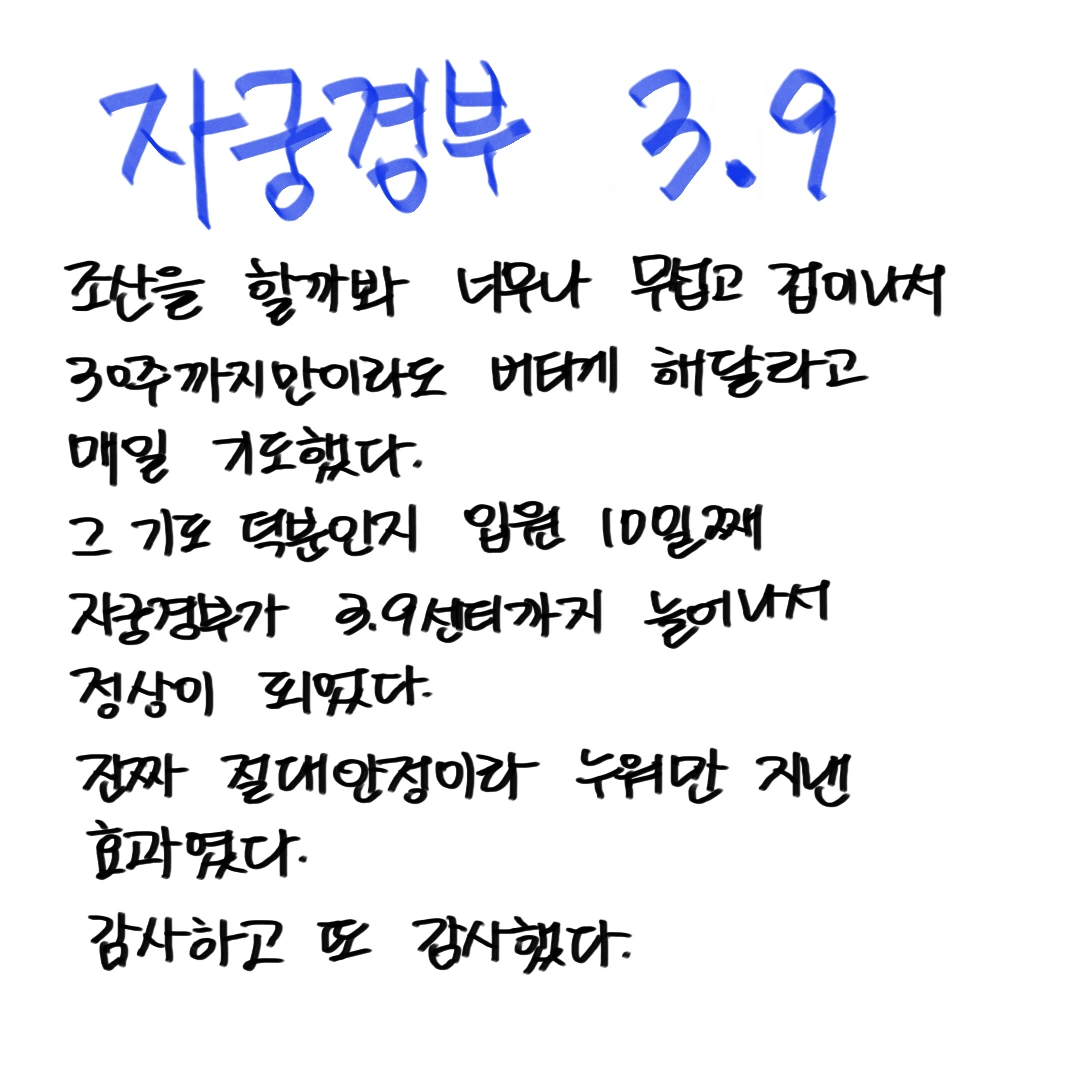 자궁경부 3.9
조산을 할까봐 너무나 무섭고 겁이나서
30주까지만이라도 버티게 해달라고
매일 기도했다.
그 기도 덕분인지 입원 10일째
자궁경부가 3.9센티까지 늘어나서
정상이 되었다.
진짜 절대안정이라 누워만 지낸
효과였다.
감사하고 또 감사했다.